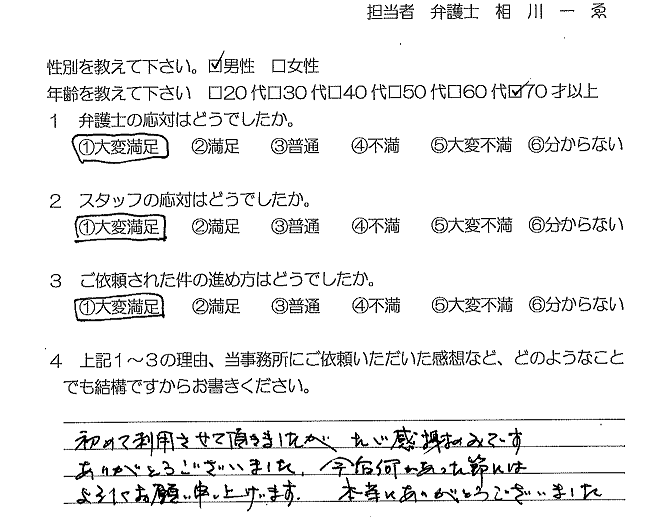 担当者 弁護士 相 川 一 ゑ
性別を教えて下さい。☑男性 □女性
年齢を教えて下さい □20代□30代□40代□50代□60代☑70才以上
1 弁護士の応対はどうでしたか。
①大変満足 ②満足 ③普通 ④不満 ⑤大変不満 ⑥分からない
2 スタッフの応対はどうでしたか。
①大変満足 ②満足 ③普通 ④不満 ⑤大変不満 ⑥分からない
3 ご依頼された件の進め方はどうでしたか。
①大変満足 ②満足 ③普通 ④不満 ⑤大変不満 ⑥分からない
4 上記1~3の理由、当事務所にご依頼いただいた感想など、どのようなこと
でも結構ですからお書きください。
初めて利用させて頂きましたが 感謝のみです
ありがとうございました。今后何かあった節には
よろしくお願い申し上げます。 本当にありがとうございました